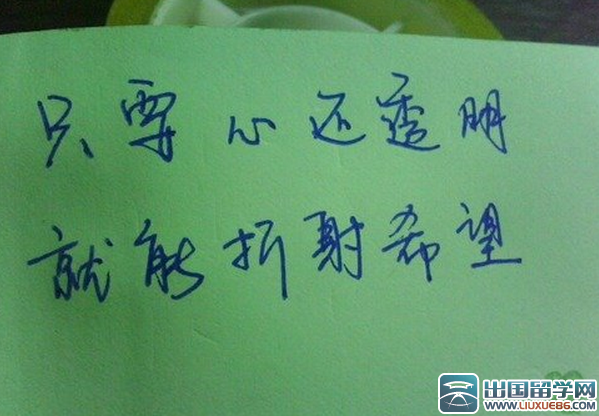 只要心还透明
就能折射希望
出国留学网
WWW.LIUXUE86.COM